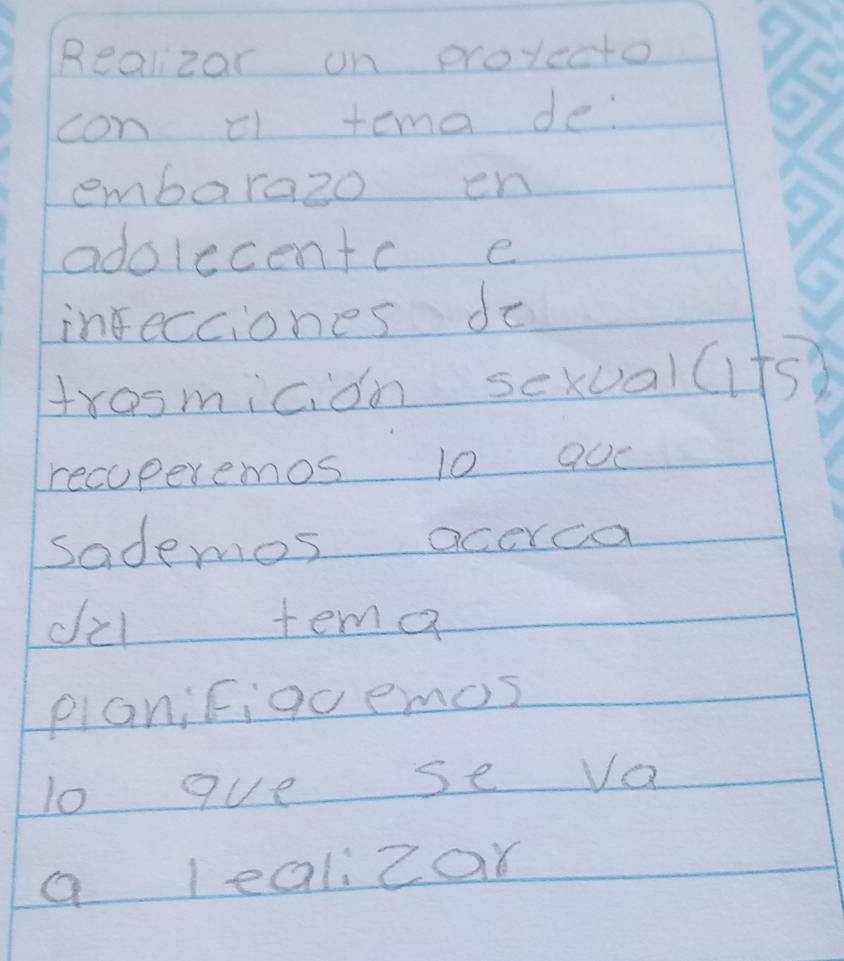 Realizar un proyecto
con el tema de:
embarazo en
adolecente e
infecciones de
trasmición sexual (ITS)
recuperemos lo que
sademos acerca
del tema
planifiquemos
lo que se va
a lealizar